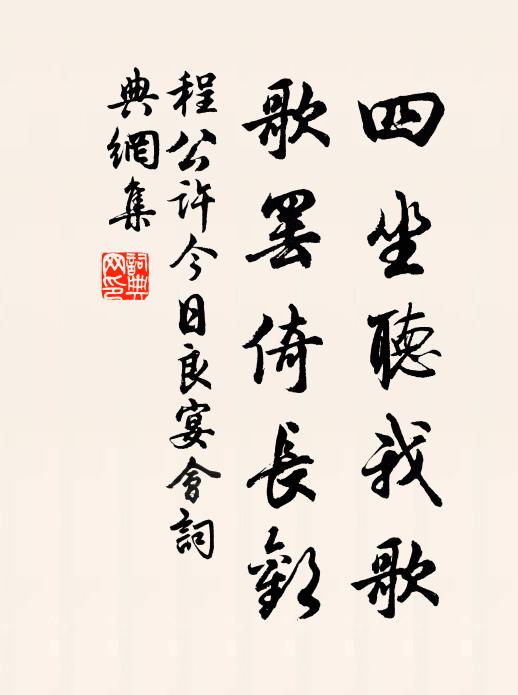 四坐聽我歌
歌罷倚長歎
程公許今日良宴會詞
典網集
詞典
网印